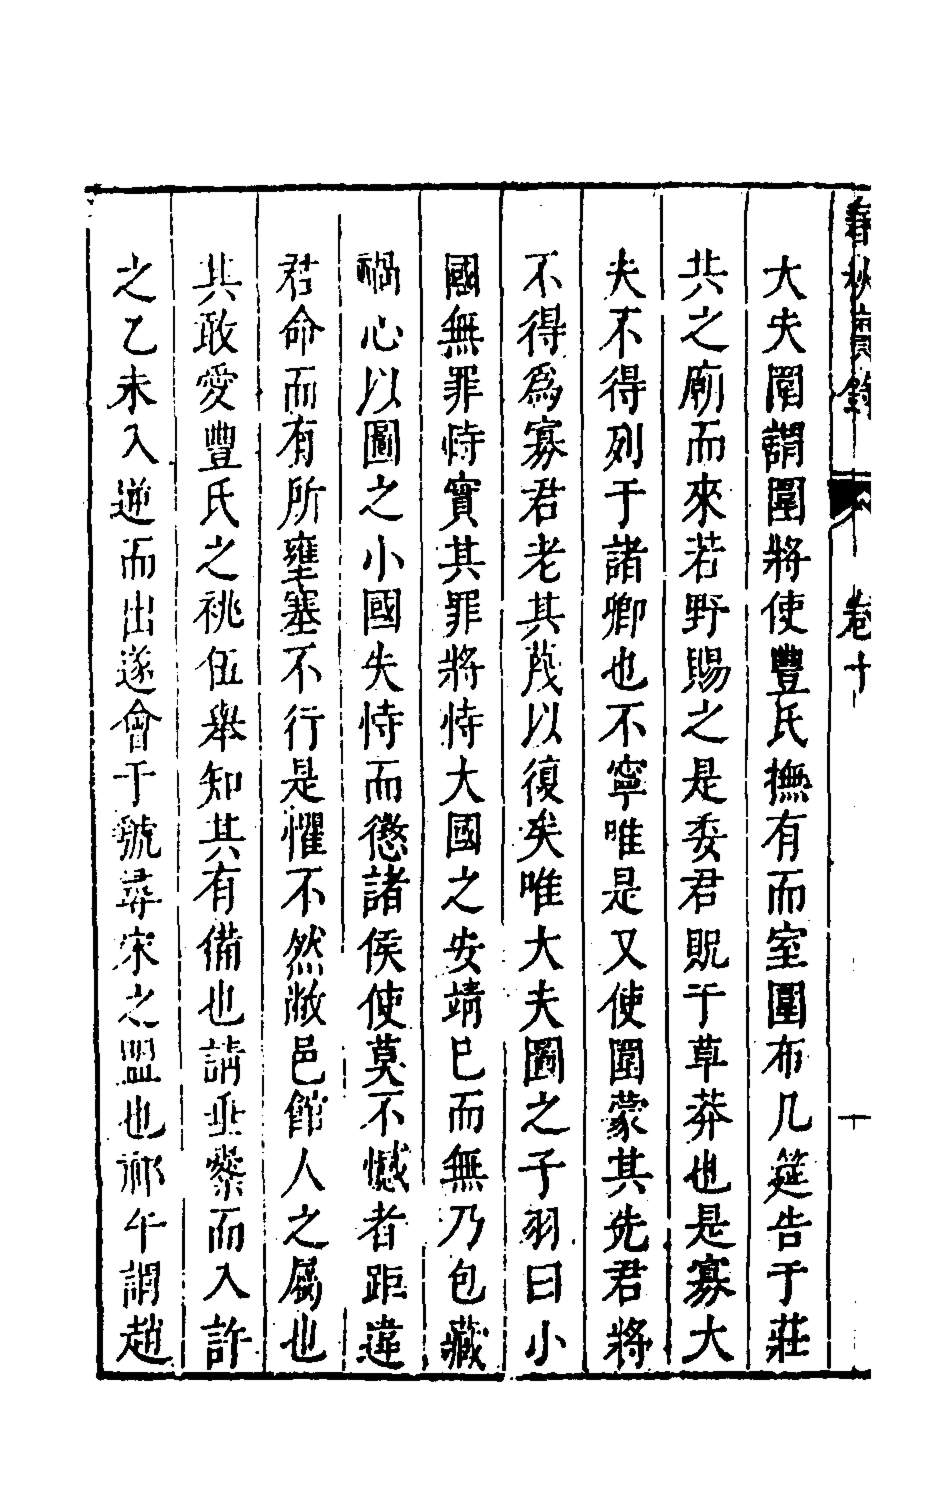 春秋實錄 卷十 十
大夫圍謂圍將使豐氏撫有而室圍布几筵告于莊
共之廟而來若野賜之是委君貺于草莽也是寡大
夫不得列于諸卿也不寧唯是又使圍蒙其先君將
不得爲寡君老其蔑以復矣唯大夫圖之子羽曰小
國無罪恃實其罪將恃大國之安靖已而無乃包藏
禍心以圖之小國失恃而懲諸侯使莫不憾者距違
君命而有所壅塞不行是懼不然敝邑館人之屬也
其敢愛豐氏之祧伍舉知其有備也請垂櫜而入許
之乙未入逆而出遂會于虢尋宋之盟也祁午謂趙